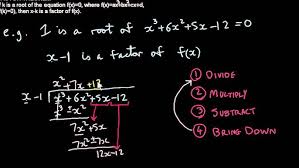 k is a root of the equation f(x)=0, where f(x)=ax³+bx²+cx+d,
f(k)=0), then x-k is a factor of f(x).
e.g. 1 is a root of x³+6x²+5x-12=0
x-1 is a factor of f(x)
x²+7x+12
x-1 x³+6x²+5x-12
x³-x²
7x²+5x
7x²-7x
12x-12
① DIVIDE
② MULTIPLY
③ SUBTRACT
④ BRING DOWN